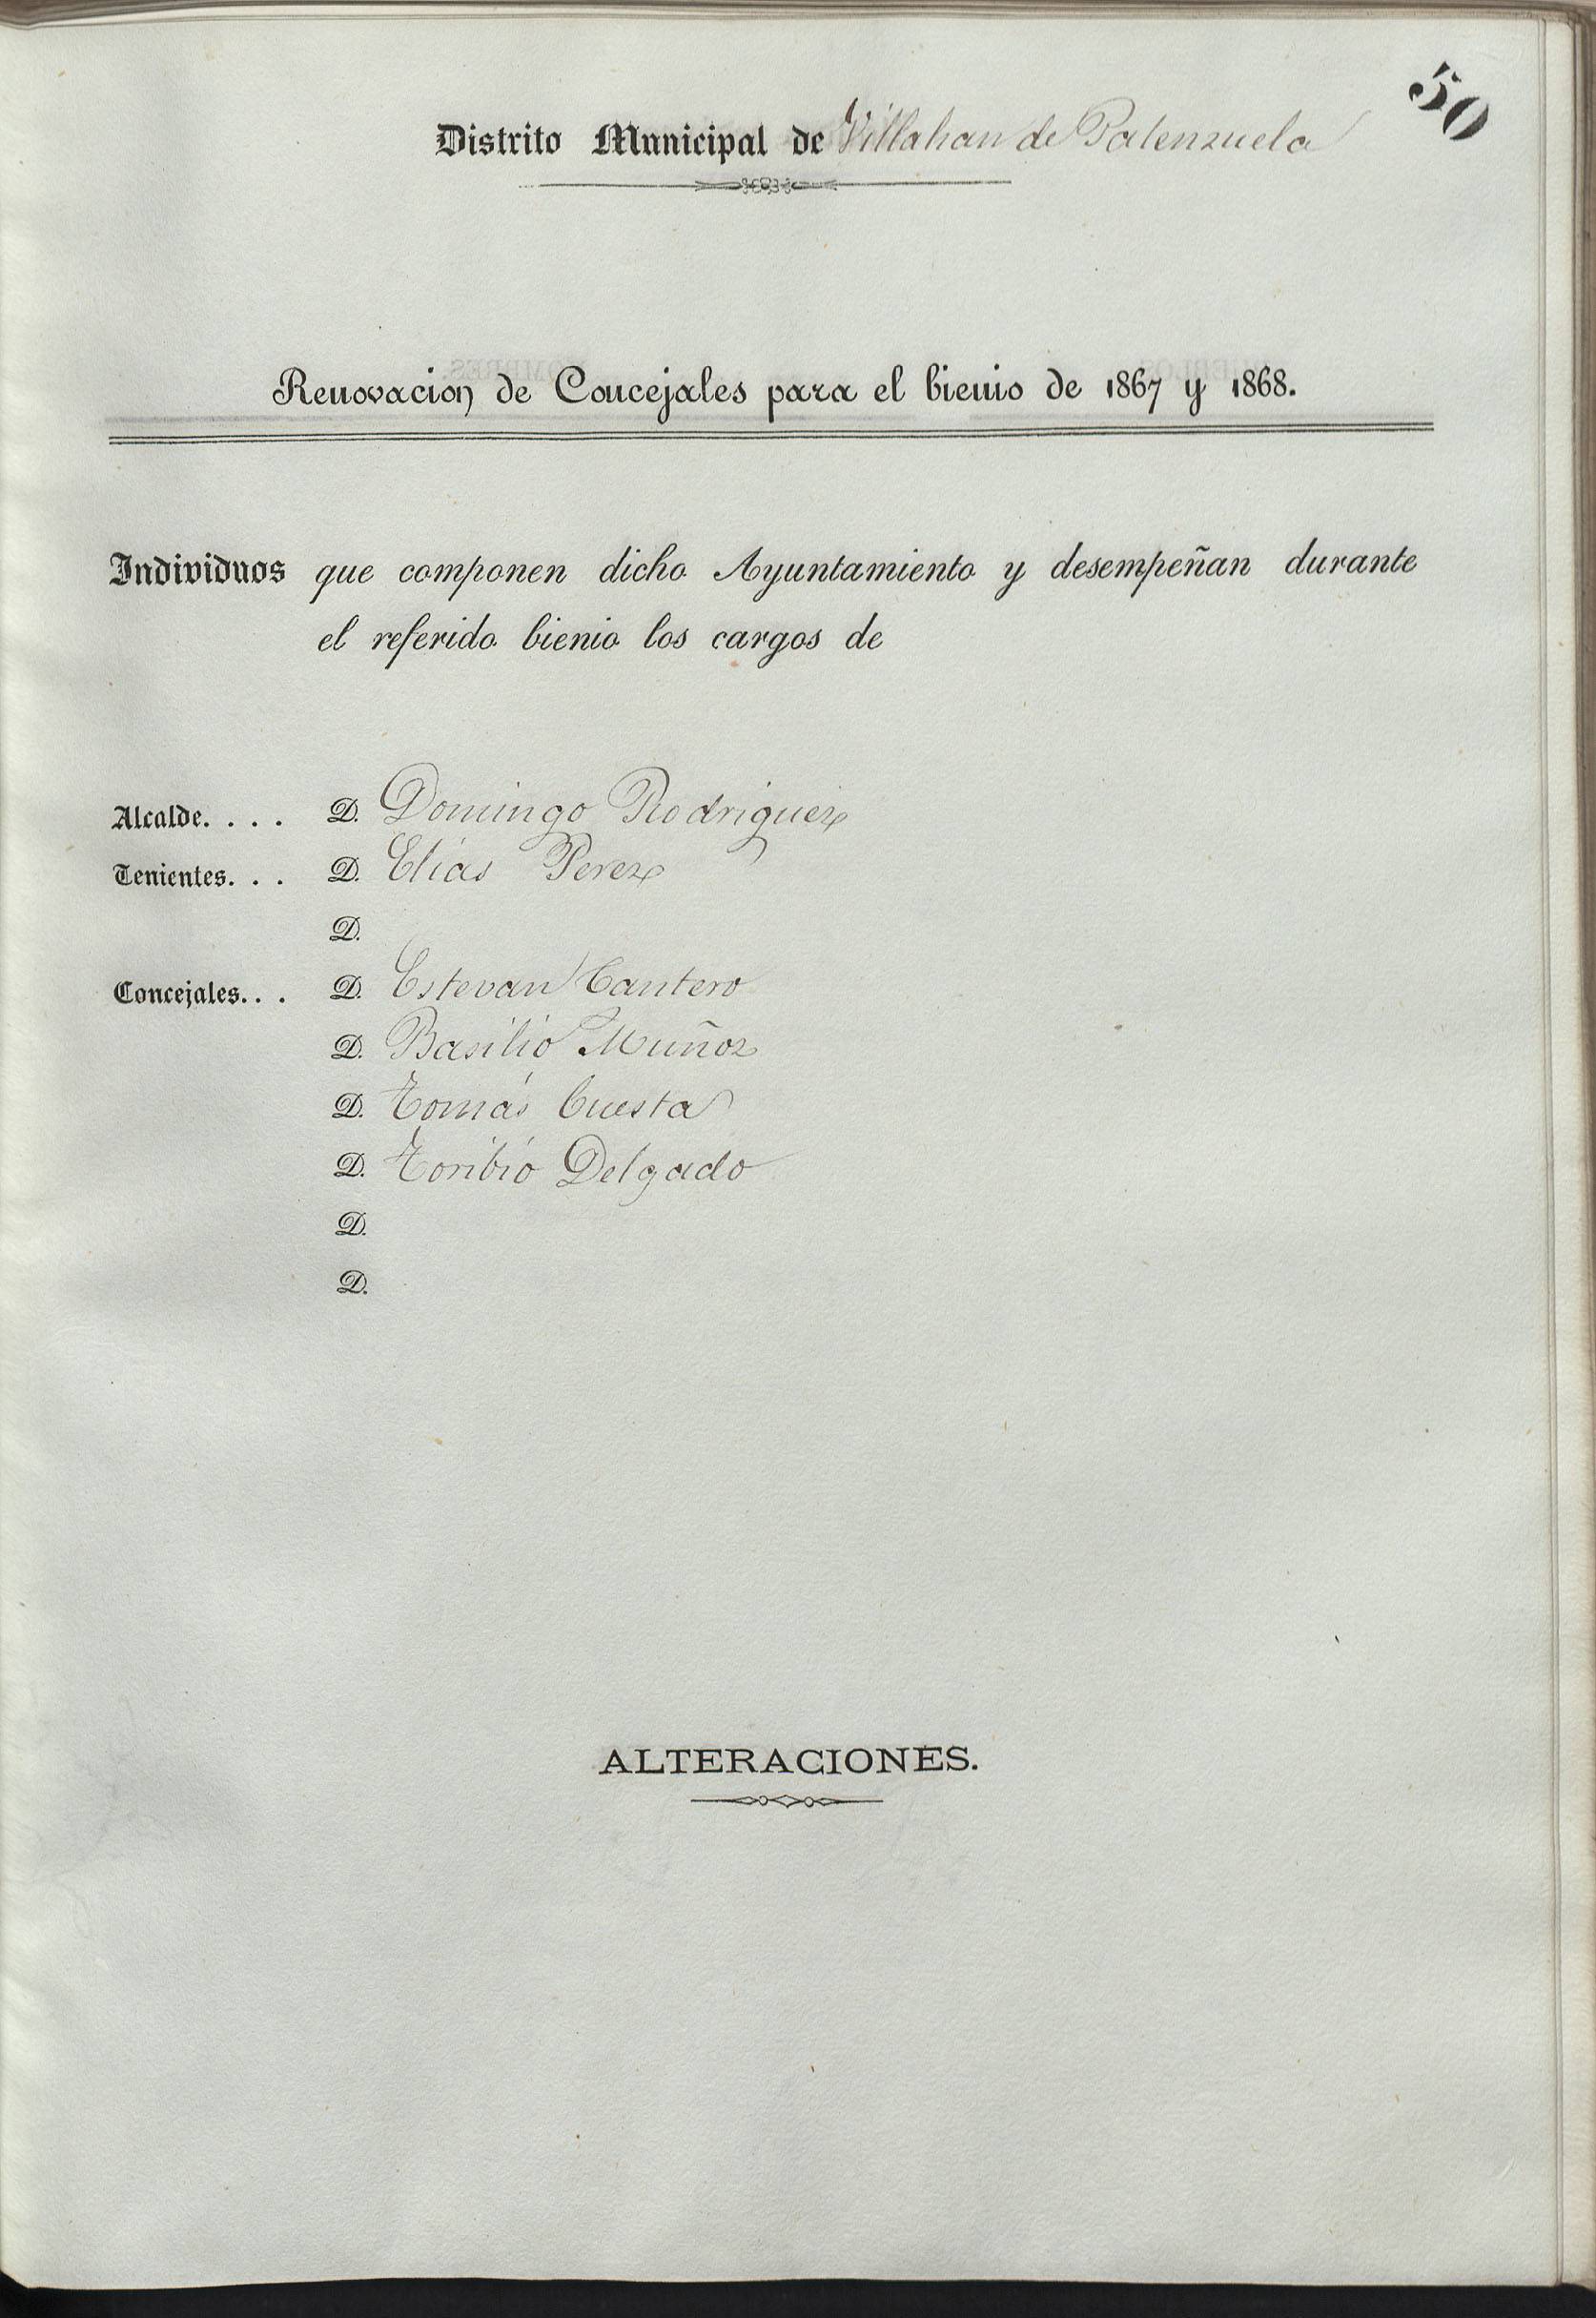 50
Distrito Municipal de Villahan de Palenzuela
Renovacion de Concejales para el bienio de 1867 y 1868.
Individuos que componen dicho Ayuntamiento y desempeñan durante
el referido bienio los cargos de
Alcalde. . . . D. Domingo Rodriguez
Tenientes. . . D. Elias Perez
D.
Concejales. . . D. Estevan Cantero
D. Basilio Muñoz
D. Tomás Cuesta
D. Toribio Delgado
D.
D.
ALTERACIONES.